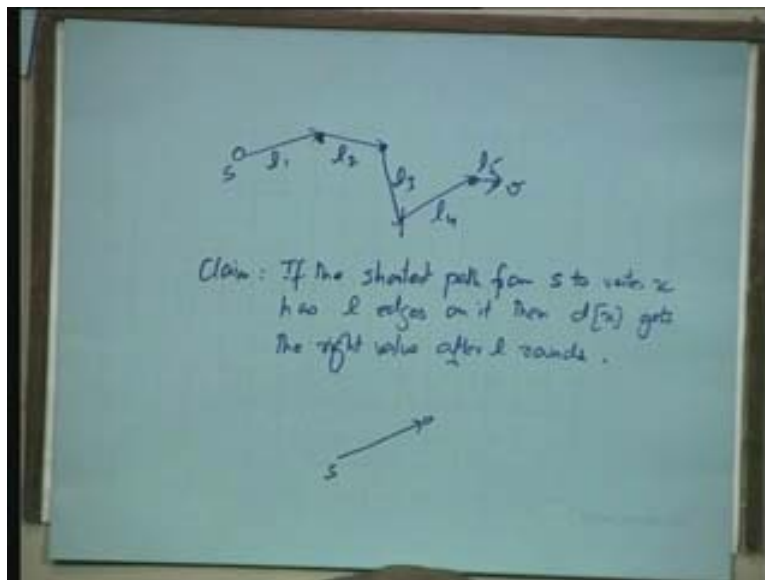 s l₁ l₂ l₃ l₄ l₅ v
Claim: If the shortest path from s to vertex x
has l edges on it then d[x] gets
the right value after l rounds.
s